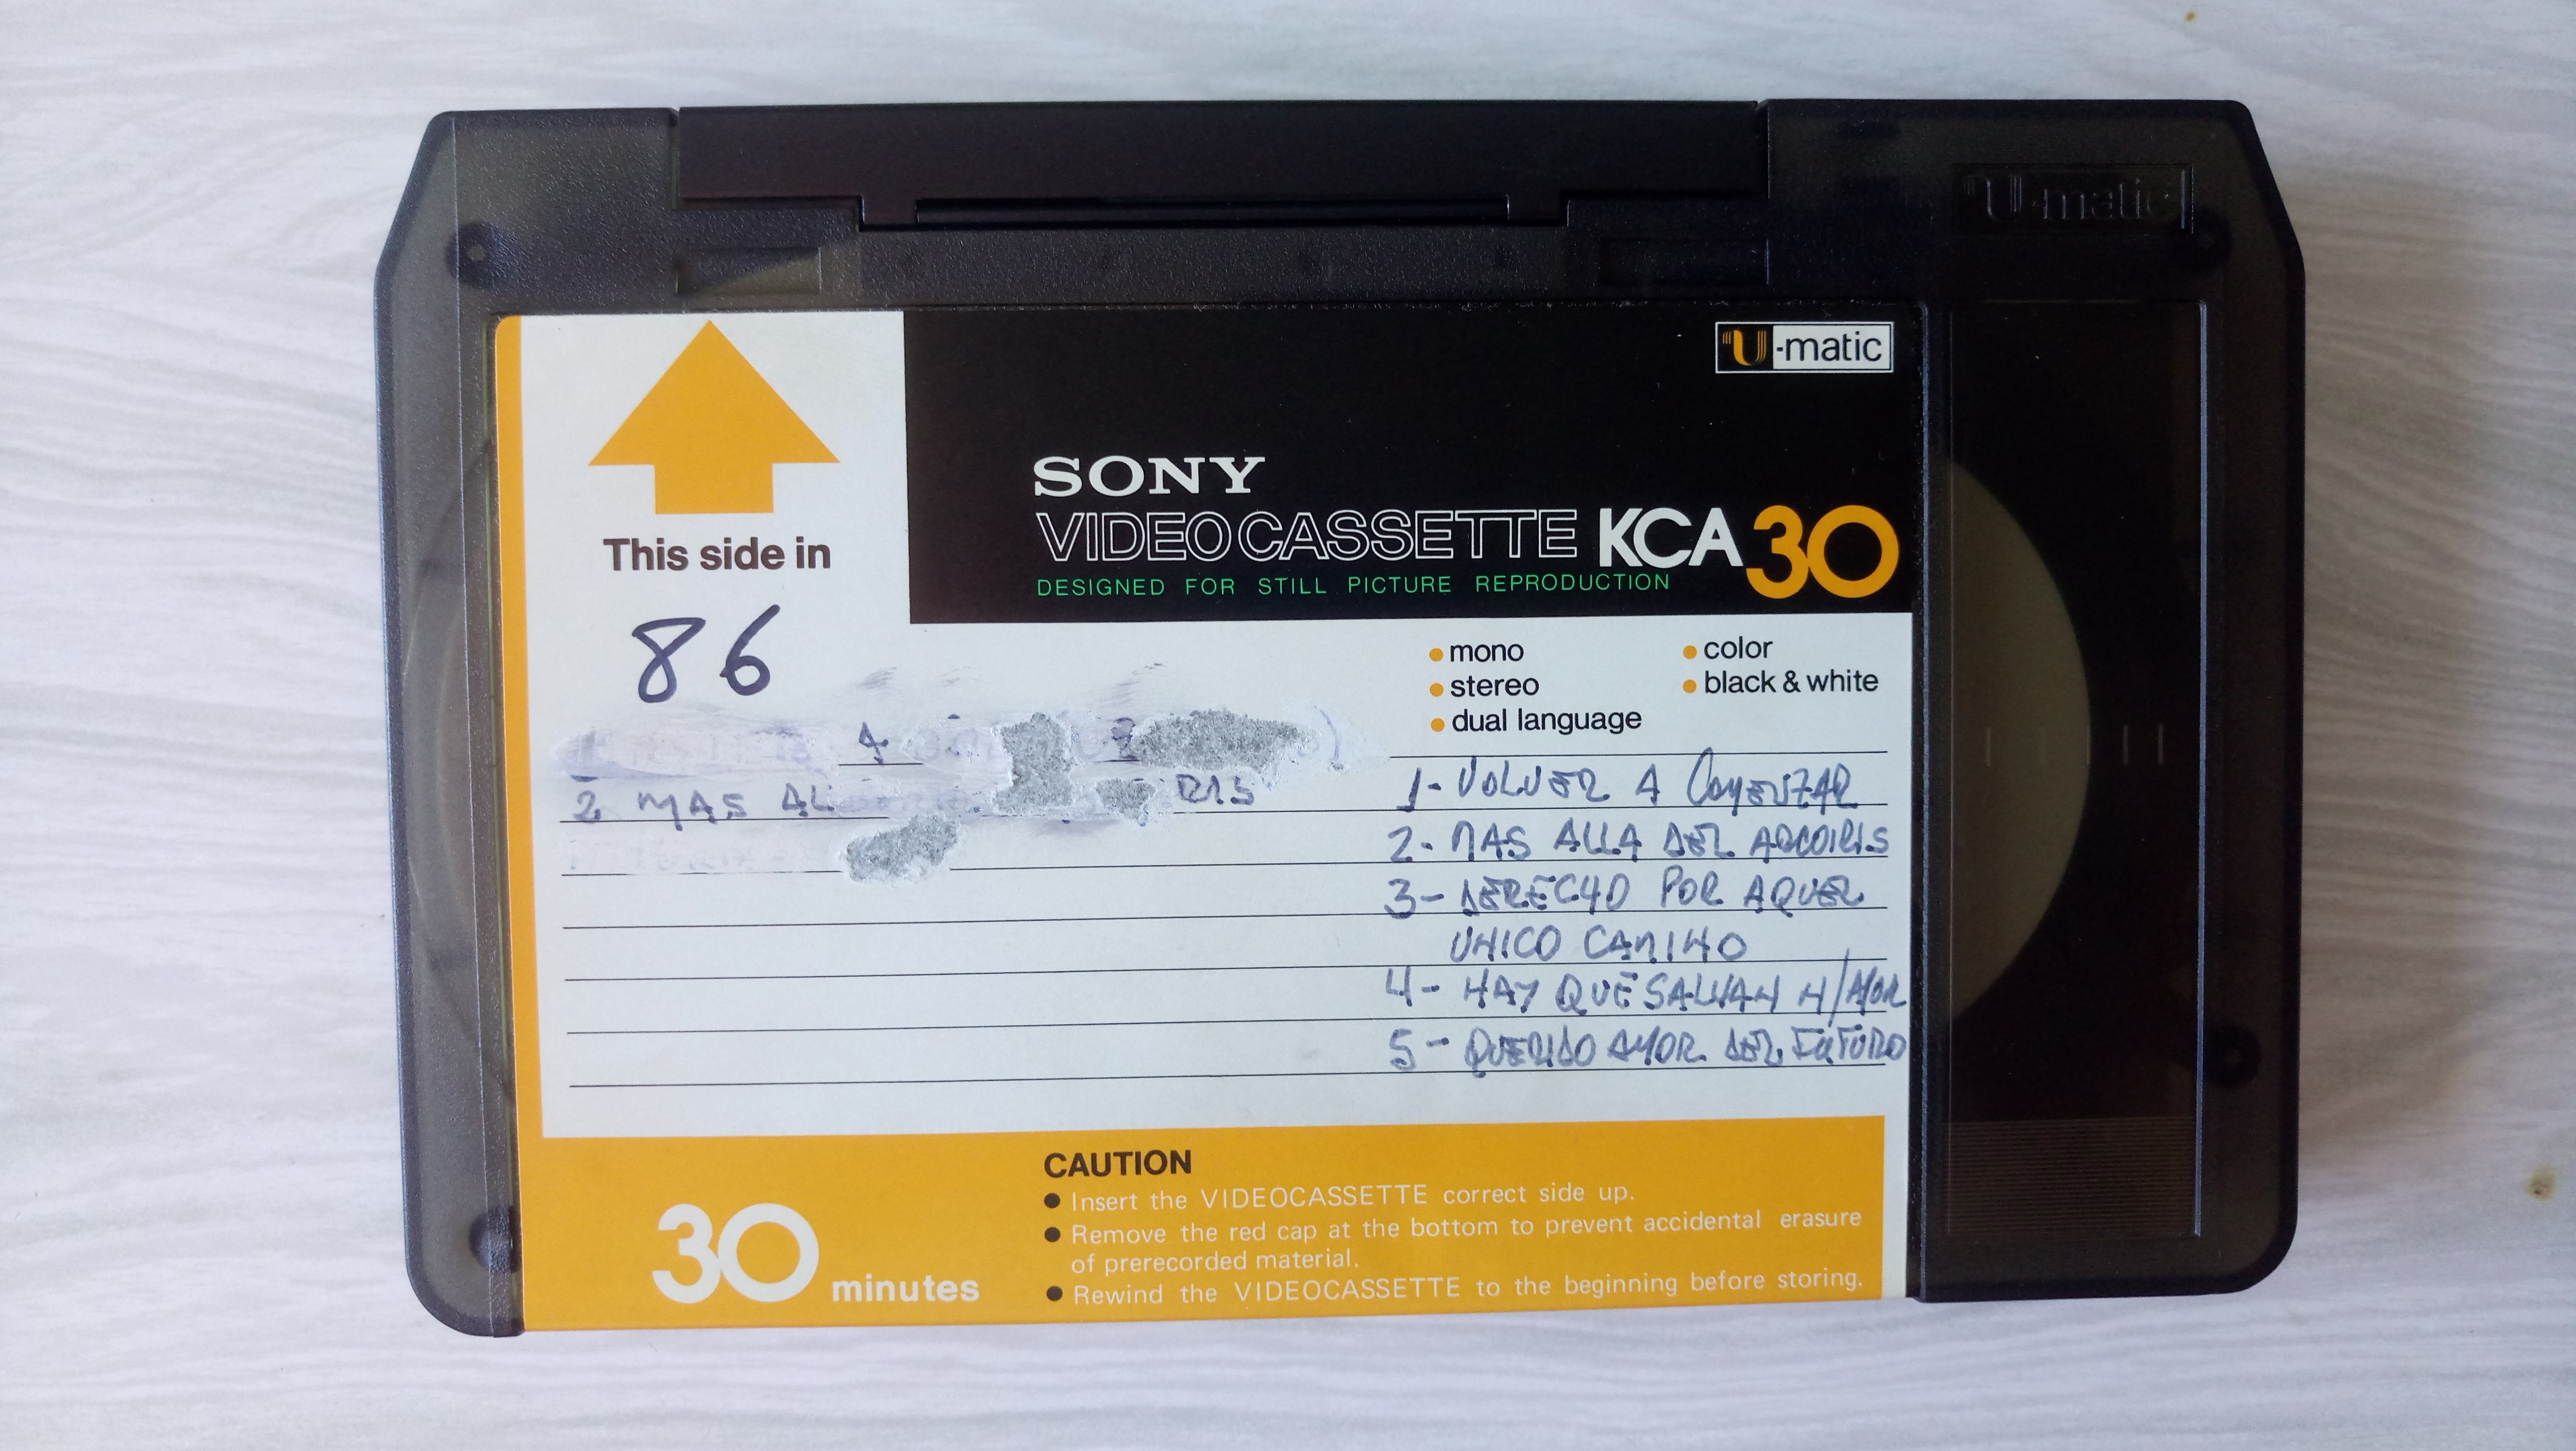 U-matic
U-matic
SONY
VIDEOCASSETTE KCA30
DESIGNED FOR STILL PICTURE REPRODUCTION
This side in
86
mono
stereo
dual language
color
black & white
2 MAS AL RIS
1- VOLVER A COMENZAR
2- MAS ALLA DEL ARCOIRIS
3- DERECHO POR AQUEL
UNICO CAMINO
4- HAY QUE SALVAR N/AMOR
5- QUERIDO AMOR DEL FUTURO
30 minutes
CAUTION
Insert the VIDEOCASSETTE correct side up.
Remove the red cap at the bottom to prevent accidental erasure
of prerecorded material.
Rewind the VIDEOCASSETTE to the beginning before storing.